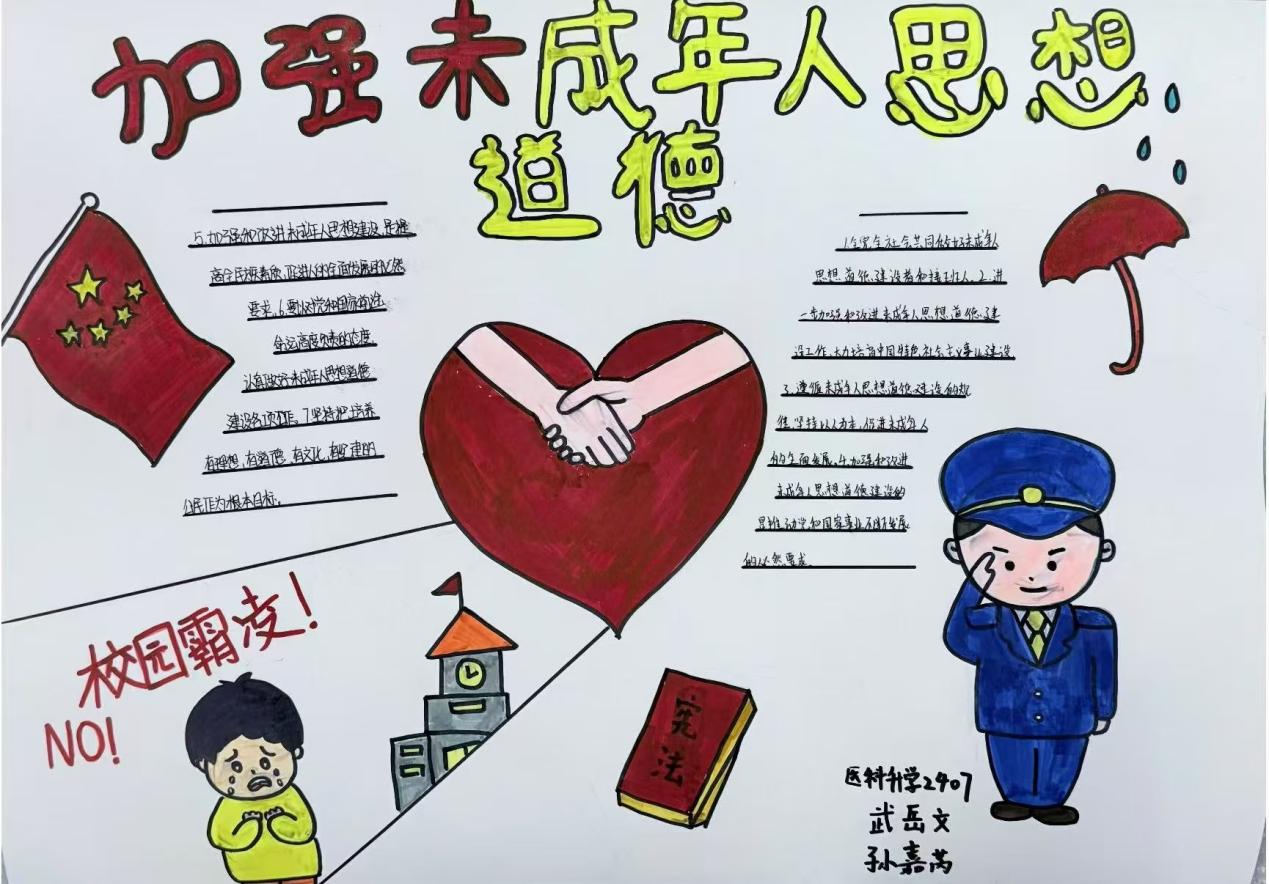 加强未成年人思想
道德
5.加强和改进未成年人思想建设,是提
高全民族素质,促进人的全面发展的必然
要求。6.要以党和国家前途
命运高度负责的态度,
认真做好未成年人思想道德
建设各项工作。7.坚持把培养
有理想、有道德、有文化、有纪律的
公民作为根本目标。
1.全党全社会共同做好未成年人
思想道德建设者和接班人。2.进
一步加强和改进未成年人思想道德建
设工作,大力培育中国特色社会主义事业建设
3.遵循未成年人思想道德建设的规
律,坚持以人为本,促进未成年人
的全面发展。4.加强和改进
未成年人思想道德建设的
是推动党和国家事业不断发展
的必然要求。
校园霸凌!
NO!
宪法
医科升学2407
武岳文
孙嘉芮